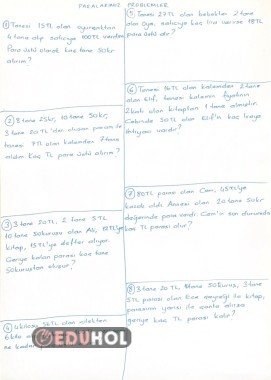 PARALARIMIZ PROBLEMLER
① Tanesi 15TL olan oyuncaktan
4 tane alıp satıcıya 100TL verdim
Para üstü olarak kaç tane 50kr
alırım?
② 8 tane 25kr, 10 tane 50kr,
3 tane 20 TL'den oluşan param ile
tanesi 7TL olan kalemden 7 tane
aldım. Kaç TL para üstü alırım?
③ 3 tane 20TL, 2 tane 5TL
10 tane 50kuruşu olan Ali,
kitap, 15TL'ye defter alıyor.
Geriye kalan parası kaç tane
50kuruştan oluşur?
④
6 kilo
ne kadar
EDUHOL
⑤ Tanesi 27TL olan bebekten 2 tane
alan satıcıya kaç lira verirse 18TL
para üstü alır?
⑥ Tanesi 16TL olan kalemden 2 tane
alan Elif, tanesi kalemin fiyatının
2katı olan kitaptan 1 tane almıştır.
Cebinde 30TL olan Elif'in kaç liraya
ihtiyacı vardır?
⑦ 80TL parası olan Cem, 45TL'ye
kazak aldı. Annesi olan 20 tane 50kr
değerinde para verdi. Cem'in son durumda
kaç TL parası olur?
⑧ 3 tane 20 TL, 8tane 50kuruş, 3 tane
5TL parası olan ile kitap,
parasının yarısı ile alınca
geriye kaç TL parası kalır?